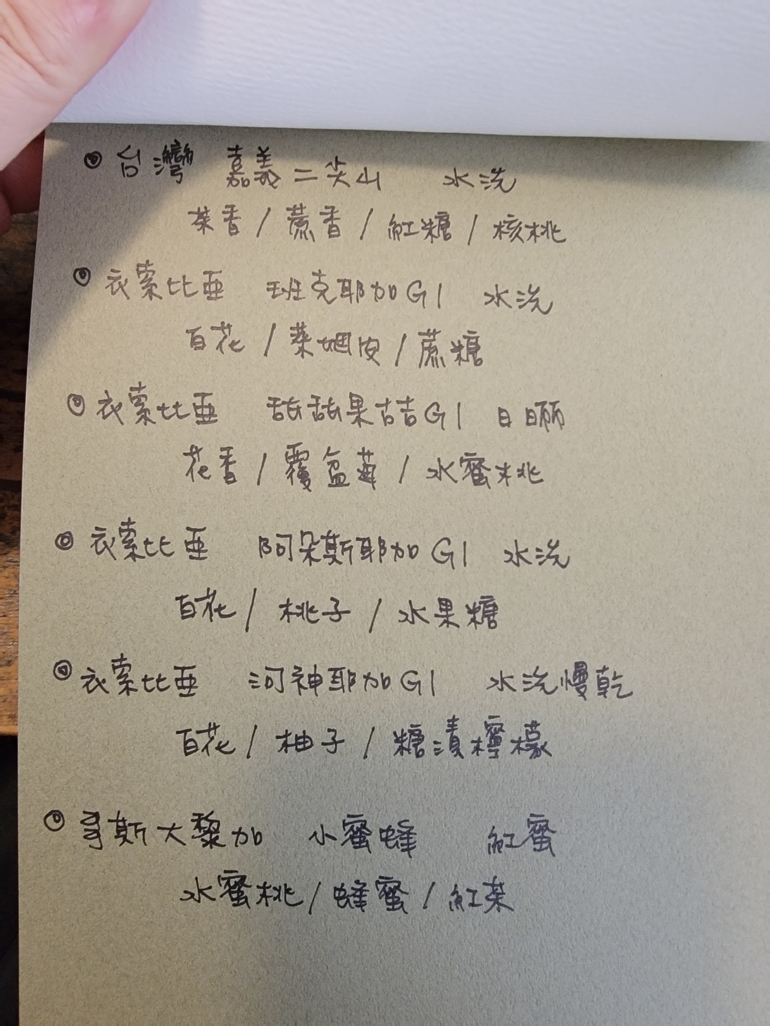 台灣 嘉義二尖山 水洗
茶香 / 蔗香 / 紅糖 / 核桃
衣索比亞 班克耶加G1 水洗
百花 / 萊姆皮 / 蔗糖
衣索比亞 甜甜果吉吉G1 日晒
花香 / 覆盆莓 / 水蜜桃
衣索比亞 阿朵斯耶加G1 水洗
百花 / 桃子 / 水果糖
衣索比亞 河神耶加G1 水洗慢乾
百花 / 柚子 / 糖漬檸檬
哥斯大黎加 小蜜蜂 紅蜜
水蜜桃 / 蜂蜜 / 紅茶